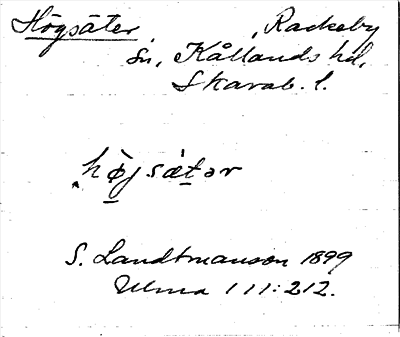 Högsäter, , Rackeby
Sn, Kållands hd,
Skarab. l.
hø̀jsá̈tər
S. Landtmanson 1899
Ulma 111:212.